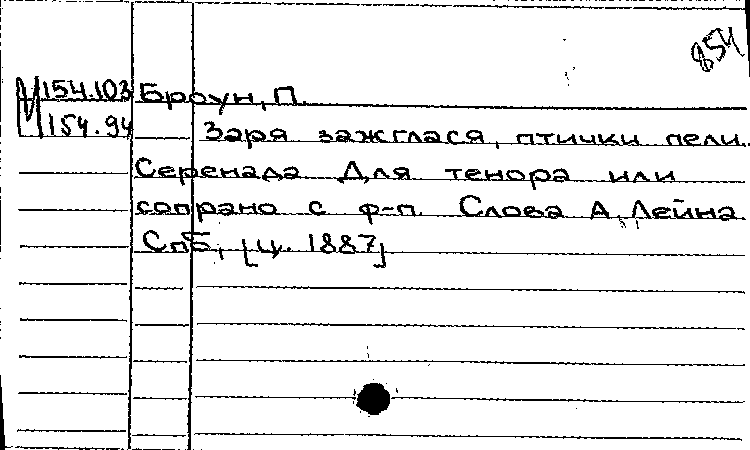 854
М154.103 Броун, П.
154.94 Заря зажглася, птички пели.
Серенада Для тенора или
сопрано с ф-п. Слова А. Лейна
СпБ, [ц. 1887]